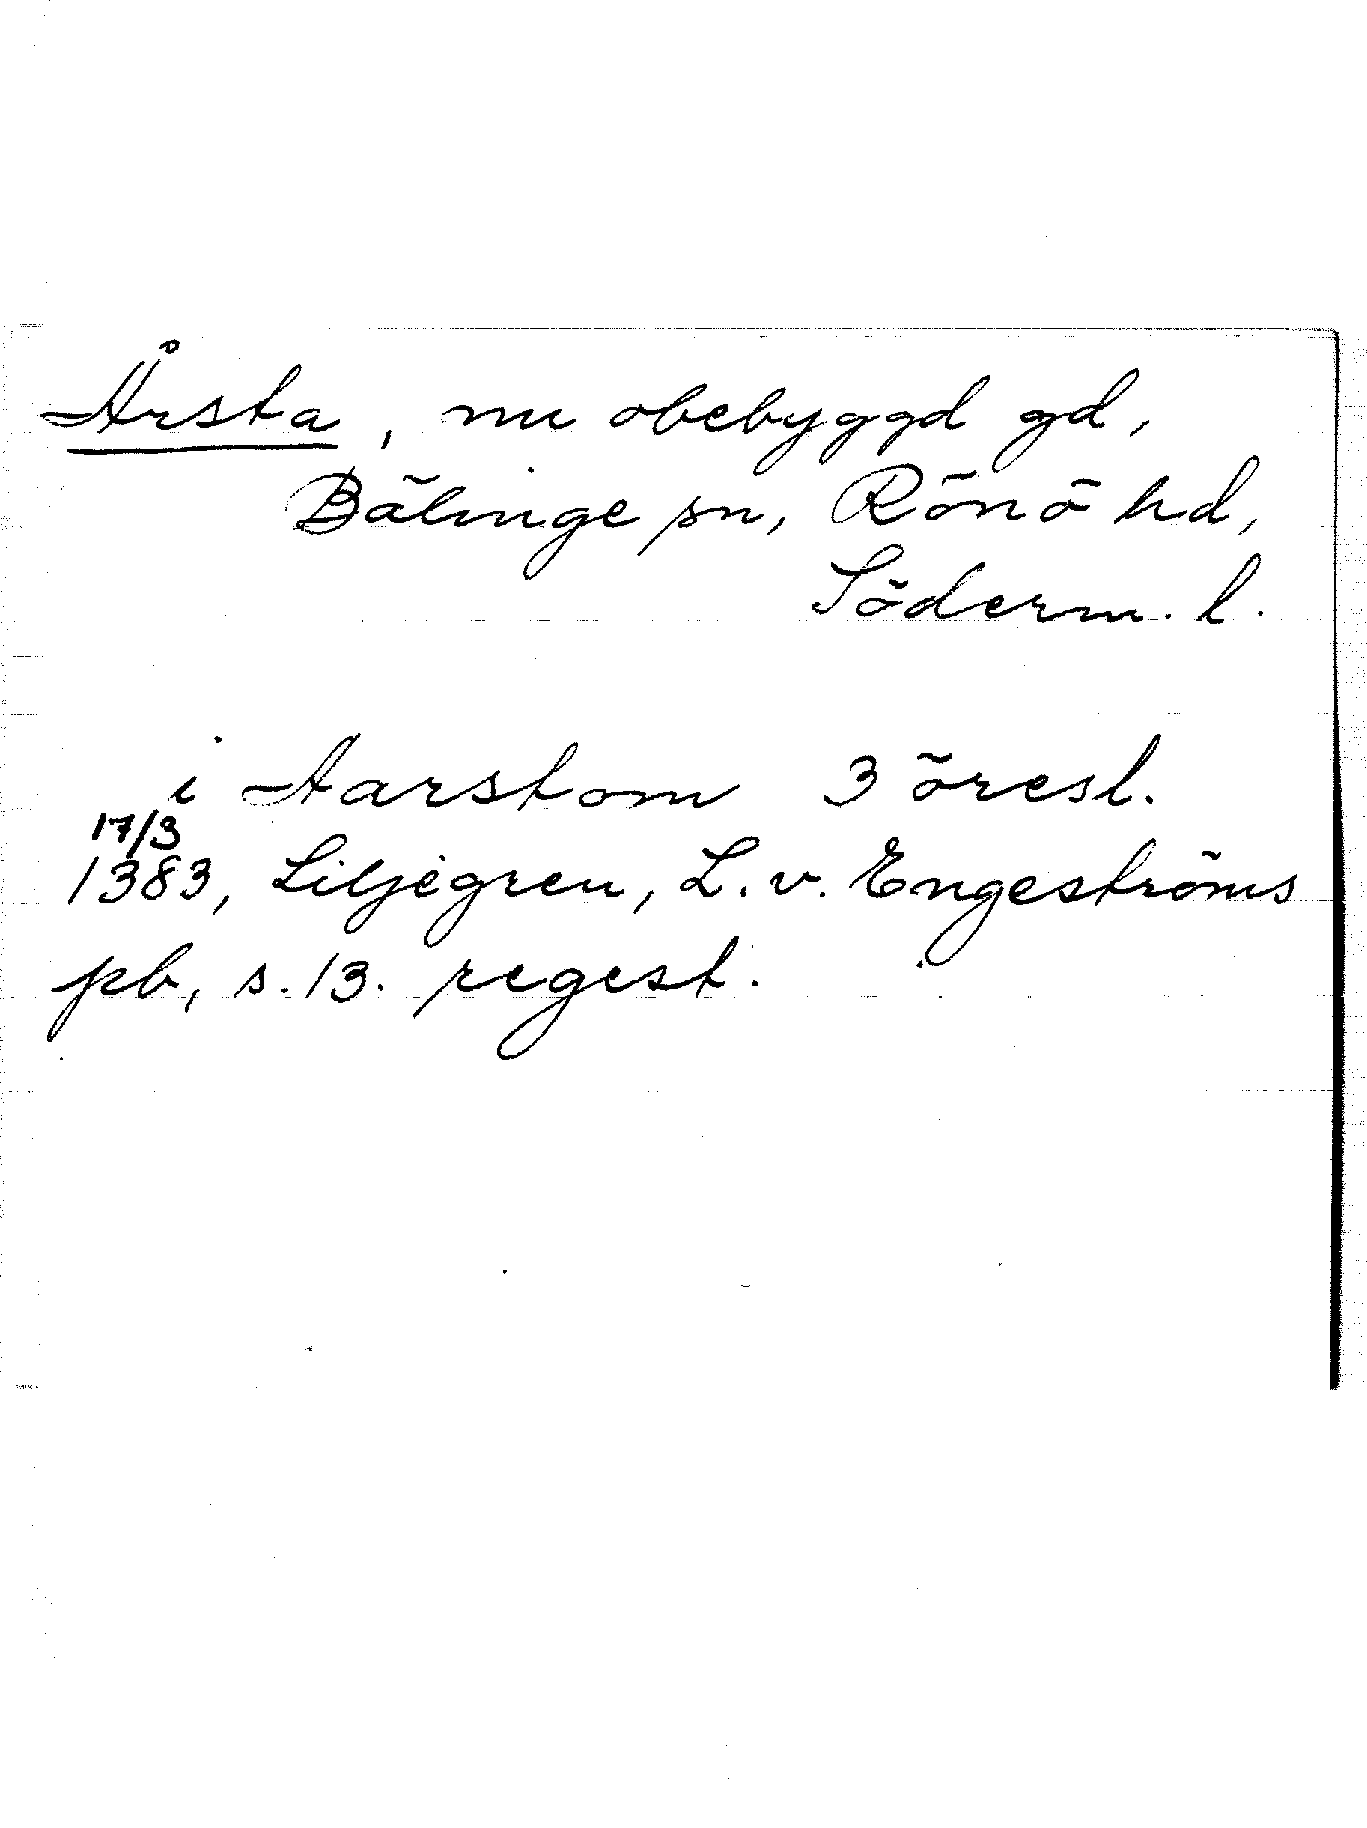 Årsta, nu obebyggd gd,
Bälinge sn, Rönö hd,
Söderm. l.
i Aarstom 3 öresl.
17/3
1383, Liljegren, L. v. Engeströms
pb, s. 13. regest.